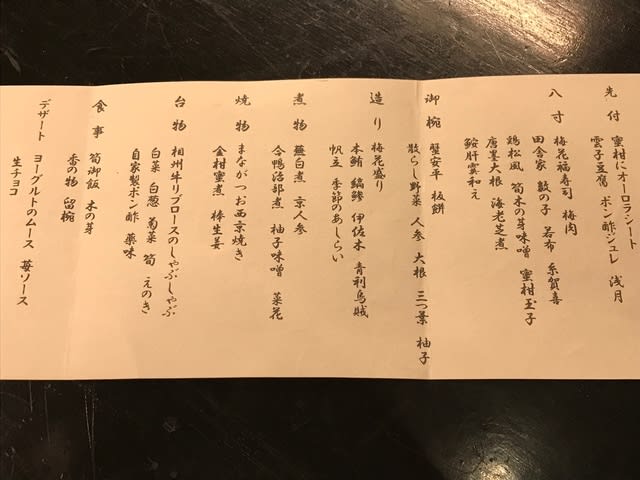 先付 蜜柑にオーロラシート
雲子豆腐 ポン酢ジュレ 浅月
八寸 梅花福寿司 梅肉
田舎家 数の子 若布 糸賀喜
鶏松風 筍木の芽味噌 蜜柑玉子
唐墨大根 海老芝煮
鮟肝雲和え
御椀 蟹安平 板餅
散らし野菜 人参 大根 三つ葉 柚子
造り 梅花盛り
本鮪 縞鯵 伊佐木 青利烏賊
帆立 季節のあしらい
煮物 蕪白煮 京人参
合鴨治部煮 柚子味噌 菜花
焼物 まながつお西京焼き
金柑蜜煮 棒生姜
台物 相州牛リブロースのしゃぶしゃぶ
白菜 白葱 菊菜 筍 えのき
自家製ポン酢 薬味
食事 筍御飯 木の芽
香の物 留椀
デザート ヨーグルトのムース 苺ソース
生チョコ